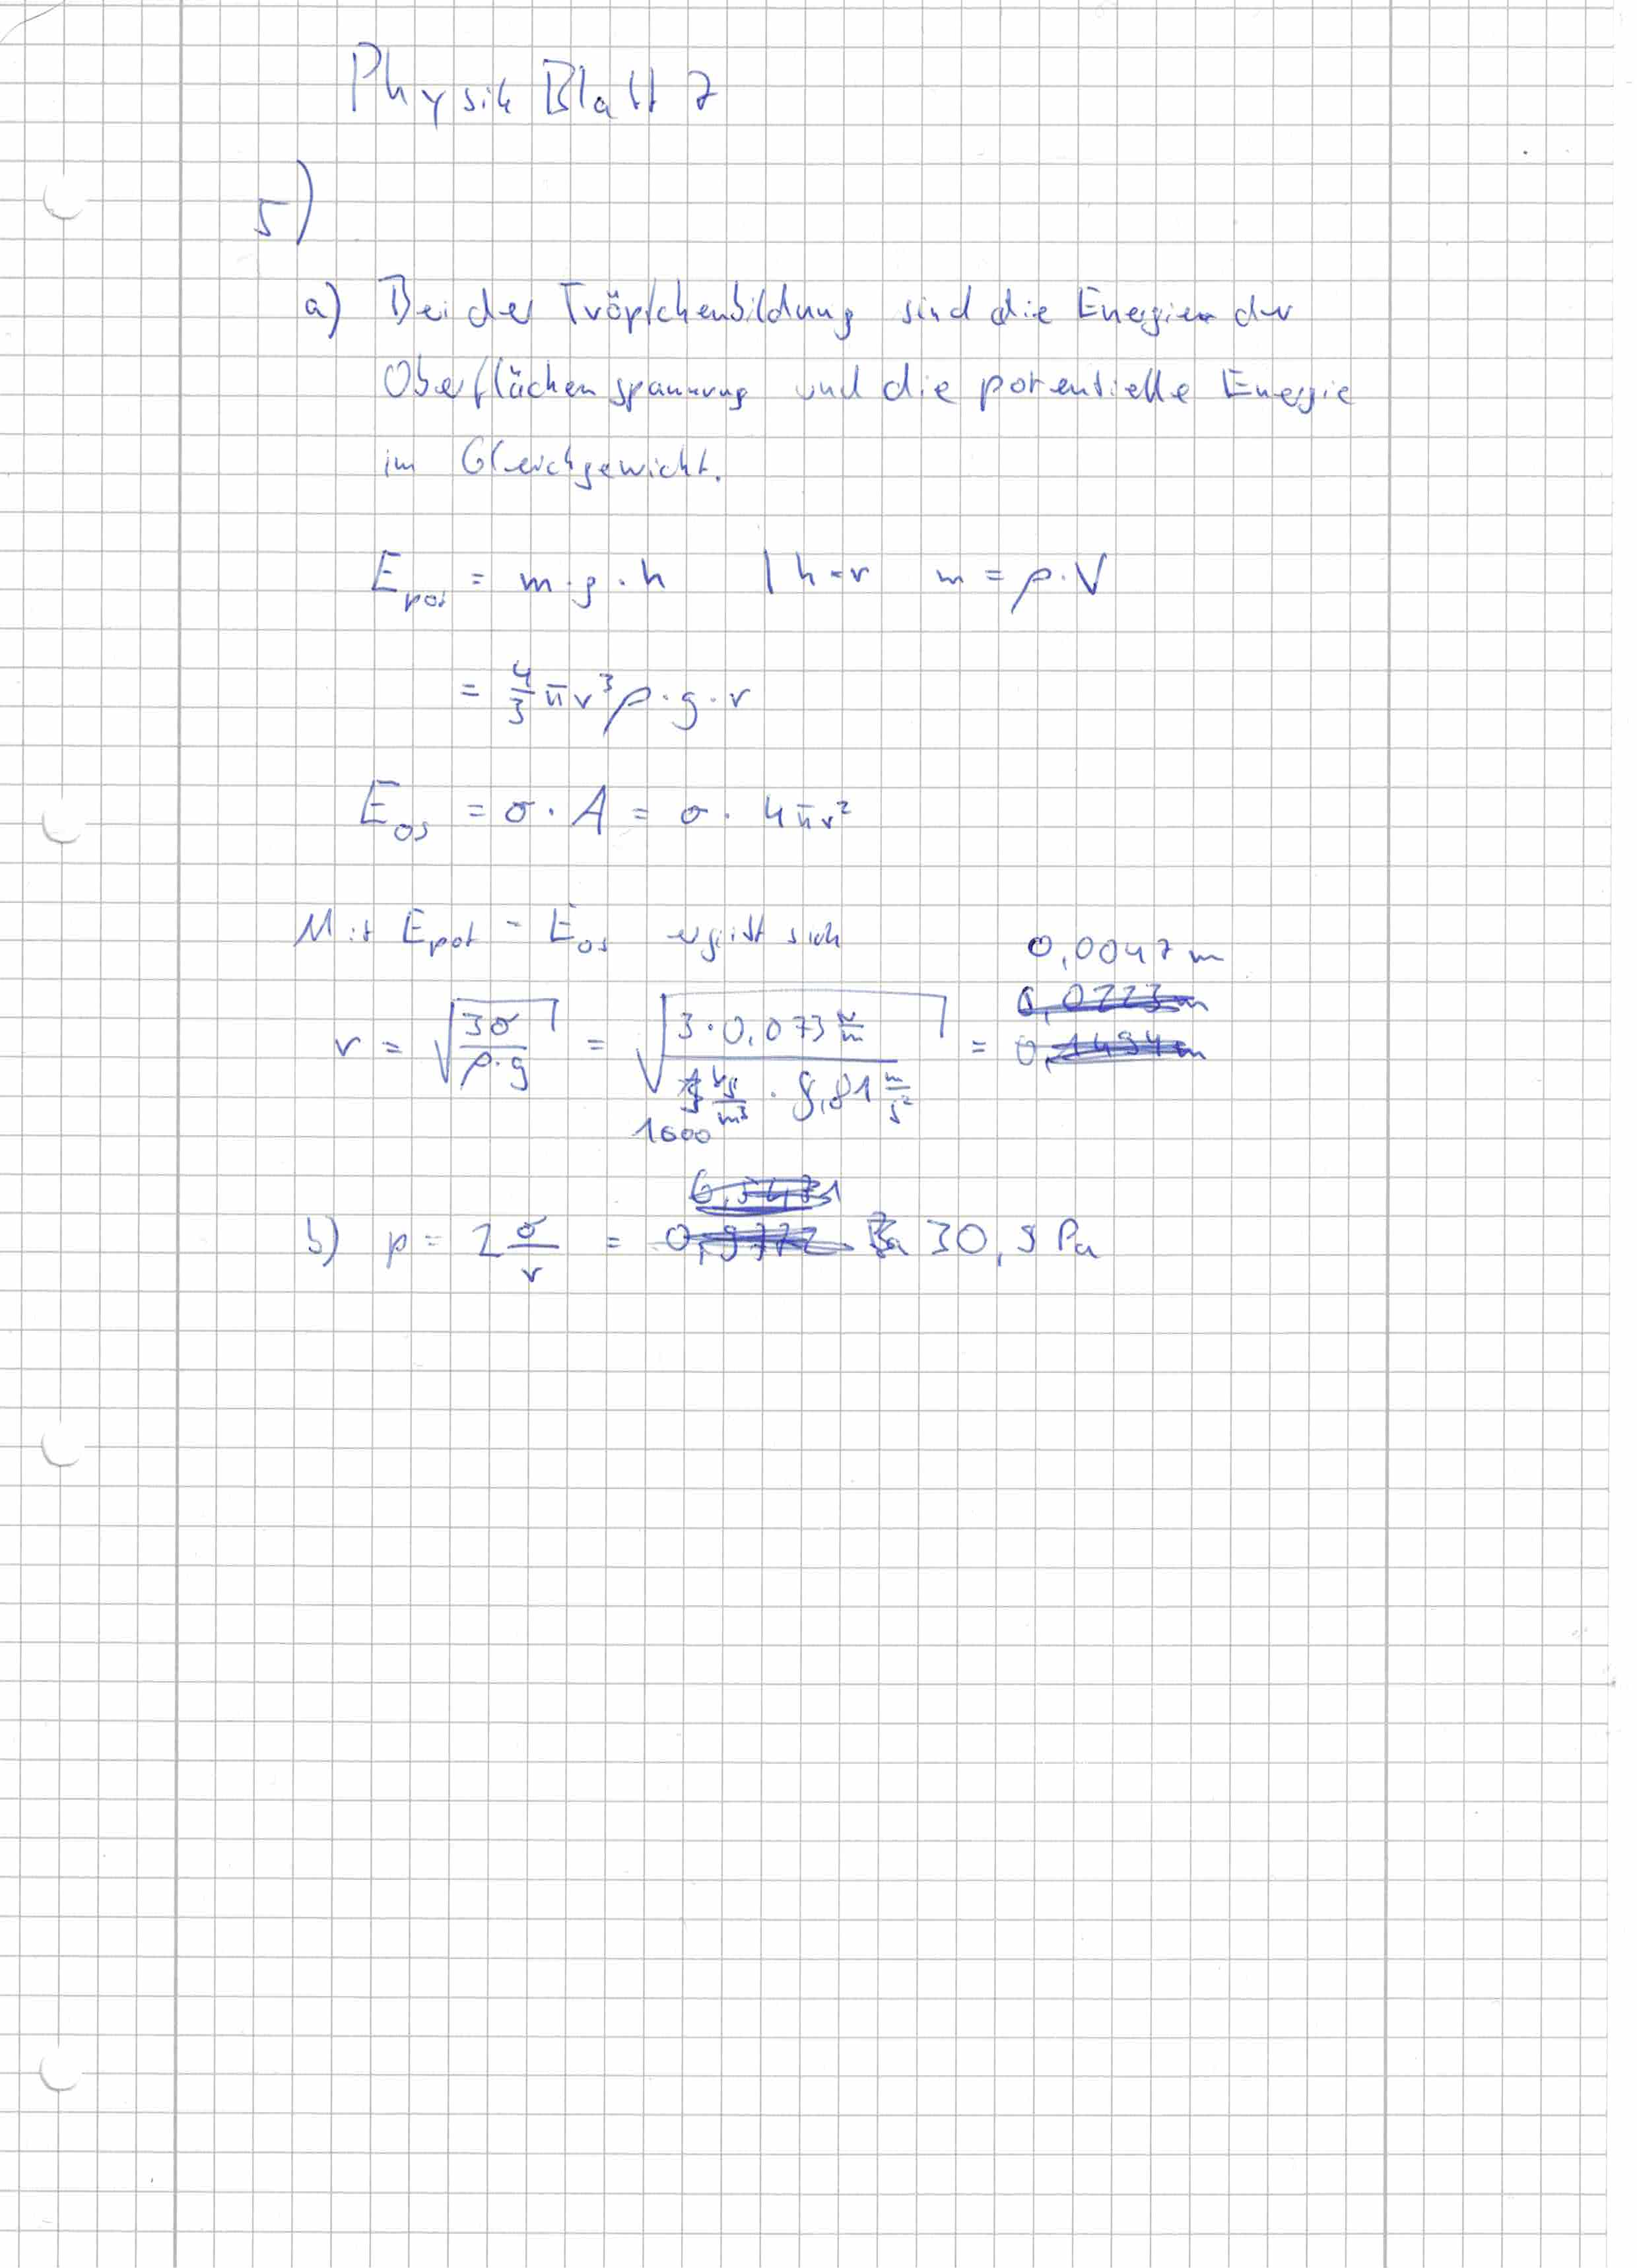 Physik Blatt 7
5)
a) Bei der Tröpfchenbildung sind die Energien der
Oberflächenspannung und die potentielle Energie
im Gleichgewicht.
E_pot = m·g·h | h=r m = ρ·V
= 4/3 π r³ ρ·g·r
E_OS = σ·A = σ·4πr²
Mit E_pot = E_OS ergibt sich
0,0047 m
r = √(3σ/(ρ·g)) = √(3·0,073 N/m / (1000 kg/m³ · 9,81 m/s²)) =
b) p = 2 σ/r = 30,9 Pa